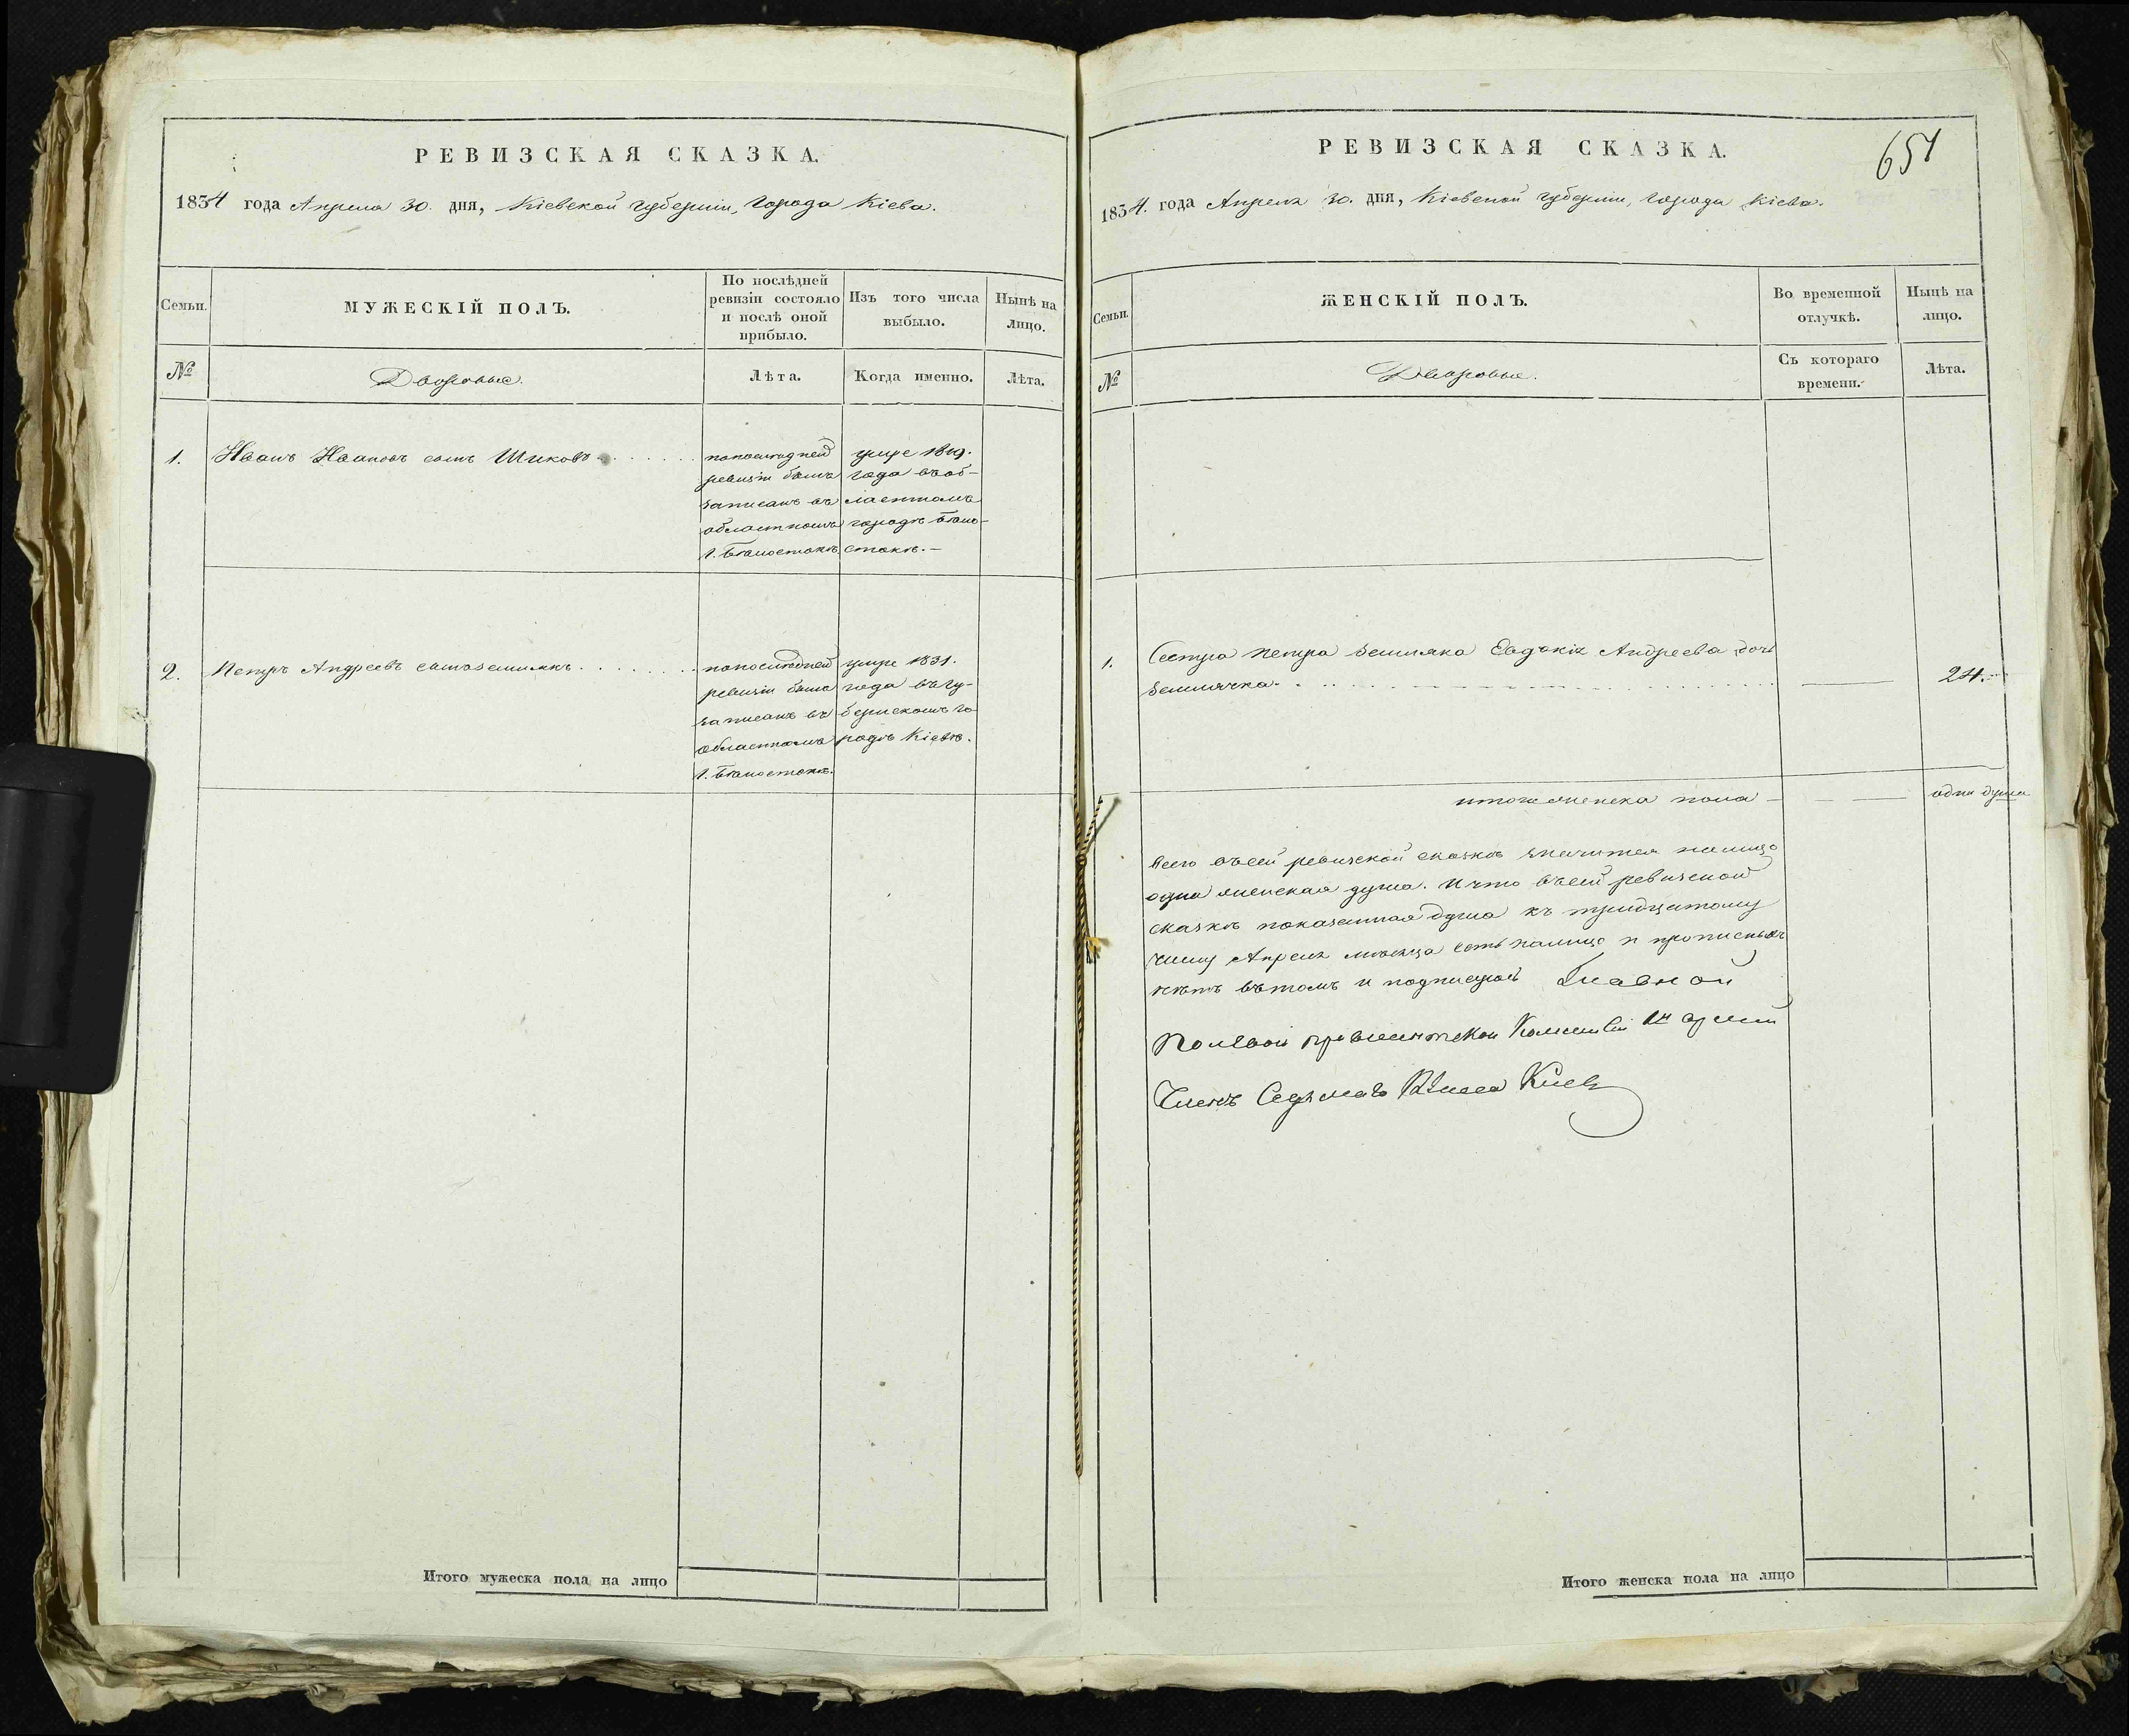 РЕВИЗСКАЯ СКАЗКА.
1834 года Апреля 30. дня, Кіевской губерніи, города Кіева.
Семьи.
МУЖЕСКІЙ ПОЛЪ.
По послѣдней
ревизіи состояло
и послѣ оной
прибыло.
Изъ того числа
выбыло.
Нынѣ на
лицо.
№
Дворовые.
Лѣта.
Когда именно.
Лѣта.
1.
Иванъ Ивановъ сынъ Шиковъ
попоследней
ревизіи былъ
записанъ въ
областномъ
г. Бѣлостокѣ
умре 1819.
года въ об-
ластномъ
городѣ Бѣло-
стокѣ.
2.
Петръ Андреевъ сынъ Землякъ
попоследней
ревизіи былъ
записанъ въ
областномъ
г. Бѣлостокѣ.
умре 1831.
года въ гу-
бернскомъ го
родѣ Кіевѣ.
Итого мужеска пола на лицо
РЕВИЗСКАЯ СКАЗКА.
651
1834. года Апреля 30. дня, Кіевской губерніи, города Кіева.
Семьи.
ЖЕНСКІЙ ПОЛЪ.
Во временной
отлучкѣ.
Нынѣ на
лицо.
№
Дворовые.
Съ котораго
времени.
Лѣта.
1.
Сестра Петра Земляка Евдокія Андреева дочь
Землячка
24.
итого женска пола
одна душа
Всего въ сей ревизской сказкѣ значится налицо
одна женская душа. И что въ сей ревизской
сказкѣ показанная душа къ тридцатому
числу Апреля месяца есть налицо и прописныхъ
нѣтъ въ томъ и подписуюсь Главной
Полевой провиантской Коммисіи 1й арміи
Членъ
Итого женска пола на лицо